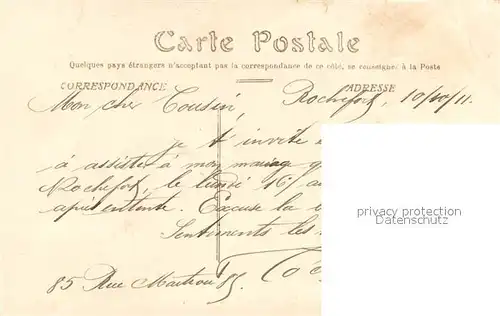 Carte Postale
Quelques pays étrangers n'acceptant pas la correspondance de ce côté, se renseigner à la Poste
CORRESPONDANCE ADRESSE
Mon cher Cousin, Rochefort, 10/10/11.
je t'invite
à assister à mon mariage
Rochefort, le lundi 16
après entente. Excuse la
Sentiments les
85 Rue 85.
privacy protection
watermark